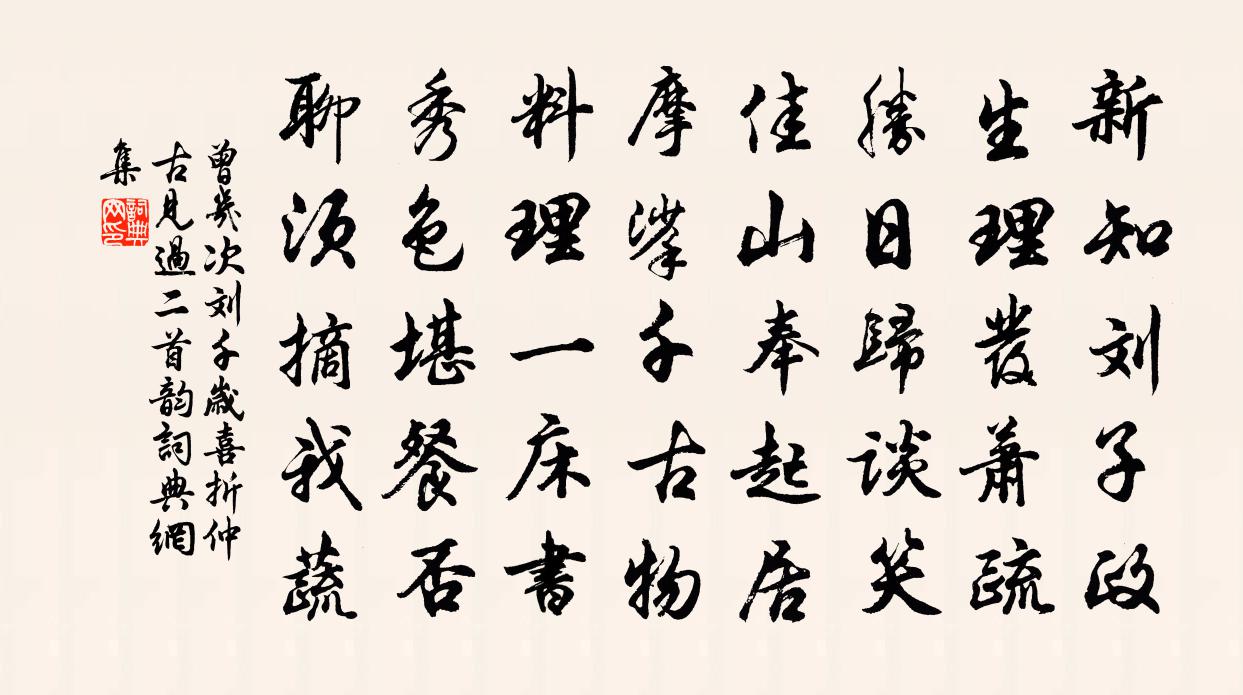 新知刘子政
生理發蕭疏
勝日歸談笑
佳山奉起居
摩挲千古物
料理一床書
秀色堪餐否
聊須摘我蔬
曾幾次刘千歲喜折仲
古見過二首韵詞典網
集
詞典網印